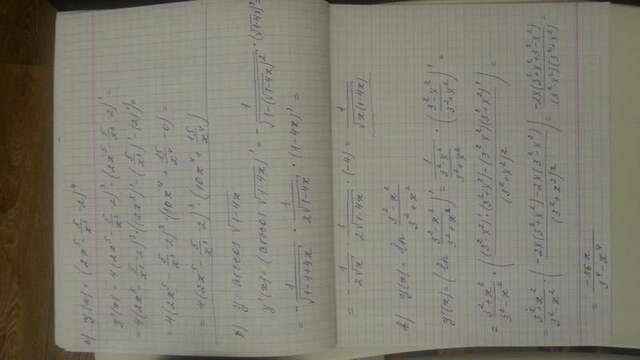 а) y(x) = (2x⁵ - 5/x³ - 2)⁴
y'(x) = 4(2x⁵ - 5/x³ - 2)³ · (2x⁵ - 5/x³ - 2)' =
= 4(2x⁵ - 5/x³ - 2)³ · ((2x⁵)' - (5/x³)' - (2)') =
= 4(2x⁵ - 5/x³ - 2)³ · (10x⁴ + 15/x⁴ - 0) =
= 4(2x⁵ - 5/x³ - 2)³ · (10x⁴ + 15/x⁴)
б) y = arccos √(1-4x)
y'(x) = (arccos √(1-4x))' = - 1/√(1-(√(1-4x))²) · (√(1-4x))' =
= - 1/√(1-1+4x) · 1/(2√(1-4x)) · (1-4x)' =
= - 1/(2√x) · 1/(2√(1-4x)) · (-4) = 1/√(x(1-4x))
в) y(x) = ln (3²-x²)/(3²+x²)
y'(x) = (ln (3²-x²)/(3²+x²))' = 1/((3²-x²)/(3²+x²)) · ((3²-x²)/(3²+x²))' =
= (3²+x²)/(3²-x²) · (((3²-x²)'·(3²+x²)-(3²-x²)(3²+x²)')/(3²+x²)²) =
= (3²+x²)/(3²-x²) · ((-2x(3²+x²)-2x(3²-x²))/(3²+x²)²) = -2x(3²+x²+3²-x²)/((3²-x²)(3²+x²)) =
= -36x/(3⁴-x⁴)